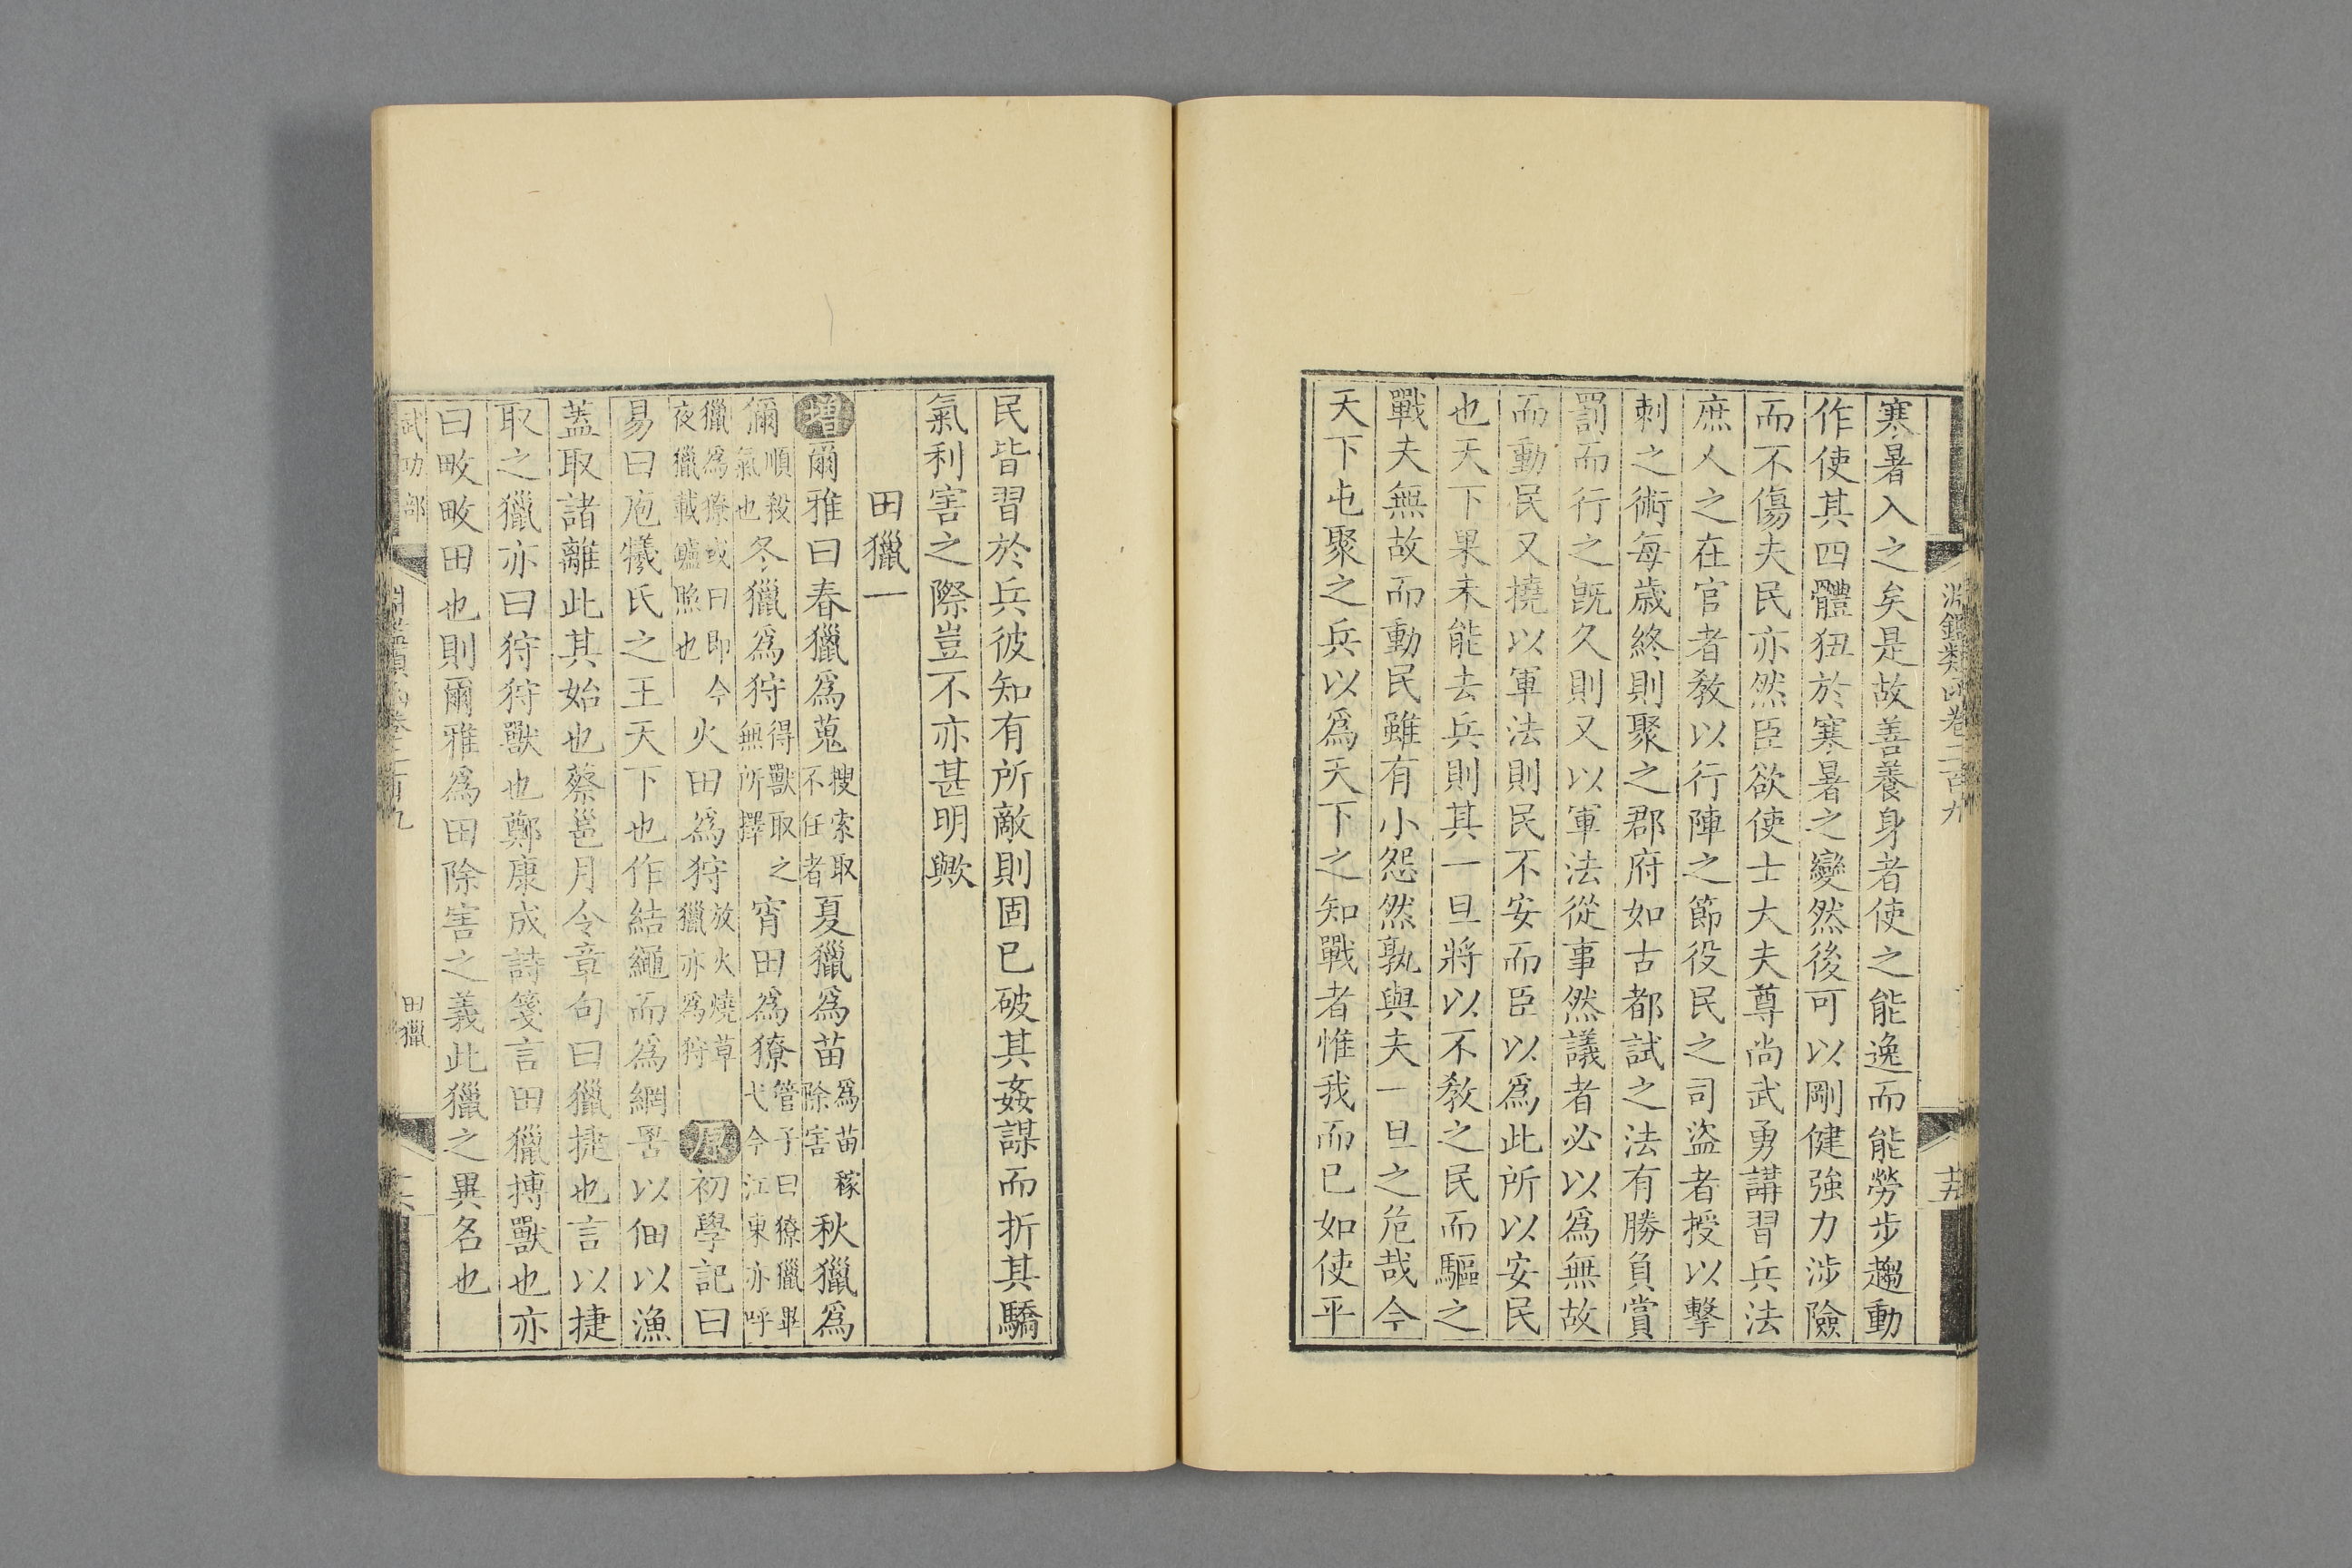 淵鑑類函卷二百九
十五
寒暑入之矣是故善養身者使之能逸而能勞步趨動
作使其四體狃於寒暑之變然後可以剛健強力涉險
而不傷夫民亦然臣欲使士大夫尊尚武勇講習兵法
庶人之在官者教以行陣之節役民之司盜者授以擊
刺之術每歲終則聚之郡府如古都試之法有勝負賞
罰而行之旣久則又以軍法從事然議者必以爲無故
而動民又撓以軍法則民不安而臣以爲此所以安民
也天下果未能去兵則其一旦將以不教之民而驅之
戰夫無故而動民雖有小怨然孰與夫一旦之危哉今
天下屯聚之兵以爲天下之知戰者惟我而已如使平
民皆習於兵彼知有所敵則固已破其姦謀而折其驕
氣利害之際豈不亦甚明歟
田獵一
增爾雅曰春獵爲蒐搜索取不任者夏獵爲苗爲苗稼除害秋獵爲
獮順殺氣也冬獵爲狩得獸取之無所擇宵田爲獠管子曰獠獵畢弋今江東亦呼
獵爲獠或曰即今夜獵載鑪照也火田爲狩放火燒草獵亦爲狩原初學記曰
易曰庖犧氏之王天下也作結繩而爲網罟以佃以漁
蓋取諸離此其始也蔡邕月令章句曰獵捷也言以捷
取之獵亦曰狩狩獸也鄭康成詩箋言田獵搏獸也亦
曰畋畋田也則爾雅爲田除害之義此獵之異名也
武功部
淵鑑類函卷二百九
田獵一
十六